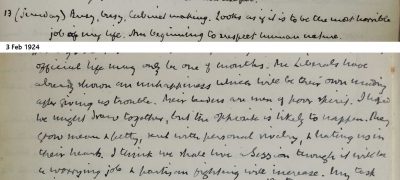 13 (Sunday) Busy, busy, Cabinet making. Looks as if it is to be the most horrible
job of my life. Am beginning to suspect human nature.
3 Feb 1924
official life may only be one of months. The Liberals have
already shown an unhappiness which will be their own undoing
after giving us trouble. Their leaders are men of poor spirit. I hoped
we might draw together, but the opposite is likely to happen. They
grow mean & petty, rent with personal rivalry, & hating us in
their hearts. I think we shall live a Session though it will be
a worrying job & party in fighting will increase. My task